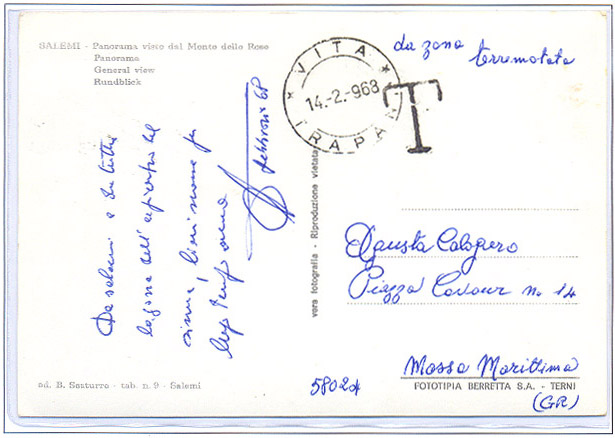 SALEMI - Panorama visto dal Monte delle Rose
Panorama
General view
Rundblick
VITA
14.-2.-968
TRAPANI
T
da zona terremotata
Da Salemi e da tutta
la zona dell'epicentro del
sisma,
febbraio 68
vera fotografia - Riproduzione vietata
Fausta Calogero
Piazza Cavour n. 14
Massa Marittima
(GR)
58024
FOTOTIPIA BERRETTA S.A. - TERNI
ed. B. Sasturro - tab. n. 9 - Salemi